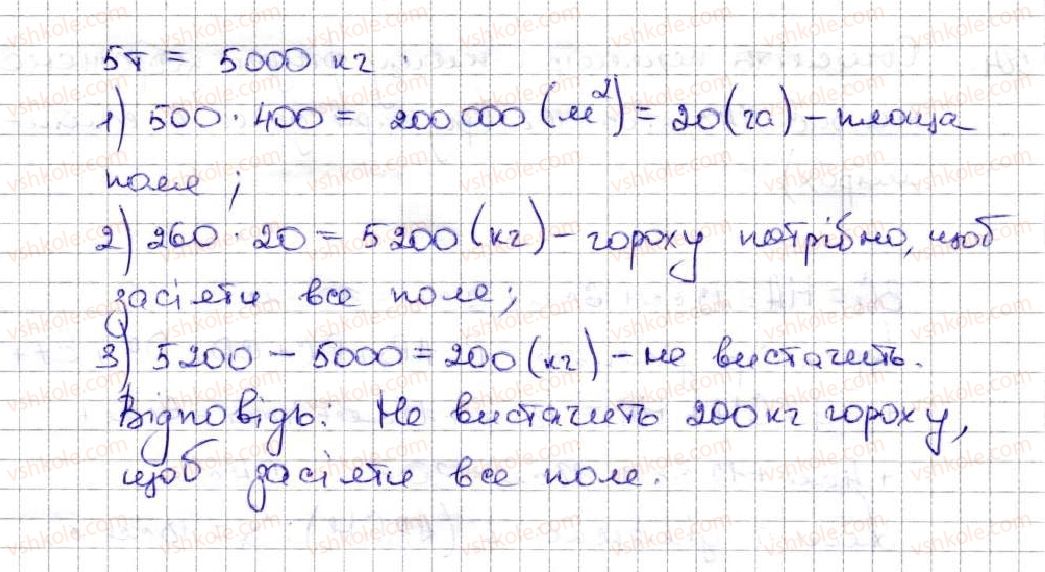 5т = 5000 кг.
1) 500 · 400 = 200 000 (м²) = 20 (га) – площа
поля;
2) 260 · 20 = 5200 (кг) – гороху потрібно, щоб
засіяти все поле;
3) 5200 – 5000 = 200 (кг) – не вистачить.
Відповідь: Не вистачить 200 кг гороху,
щоб засіяти все поле.
vshkole.com